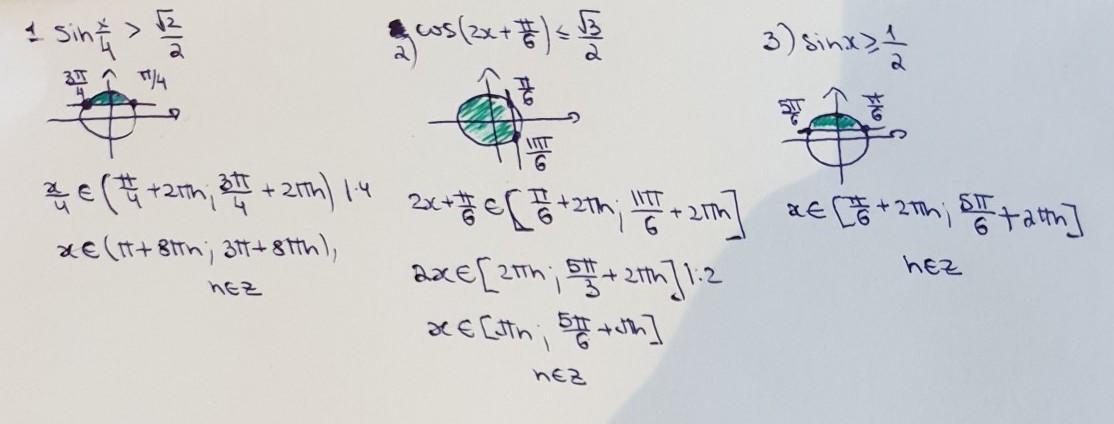 1 sin x/4 > √2/2
3π/4 π/4
x/4 ∈ (π/4 + 2πn; 3π/4 + 2πn) |·4
x ∈ (π + 8πn; 3π + 8πn),
n∈Z
2) cos(2x + π/6) ≤ √3/2
π/6
11π/6
2x + π/6 ∈ [π/6 + 2πn; 11π/6 + 2πn]
2x ∈ [2πn; 5π/3 + 2πn] |:2
x ∈ [πn; 5π/6 + πn]
n∈Z
3) sin x ≥ 1/2
5π/6 π/6
x ∈ [π/6 + 2πn; 5π/6 + 2πn]
n∈Z